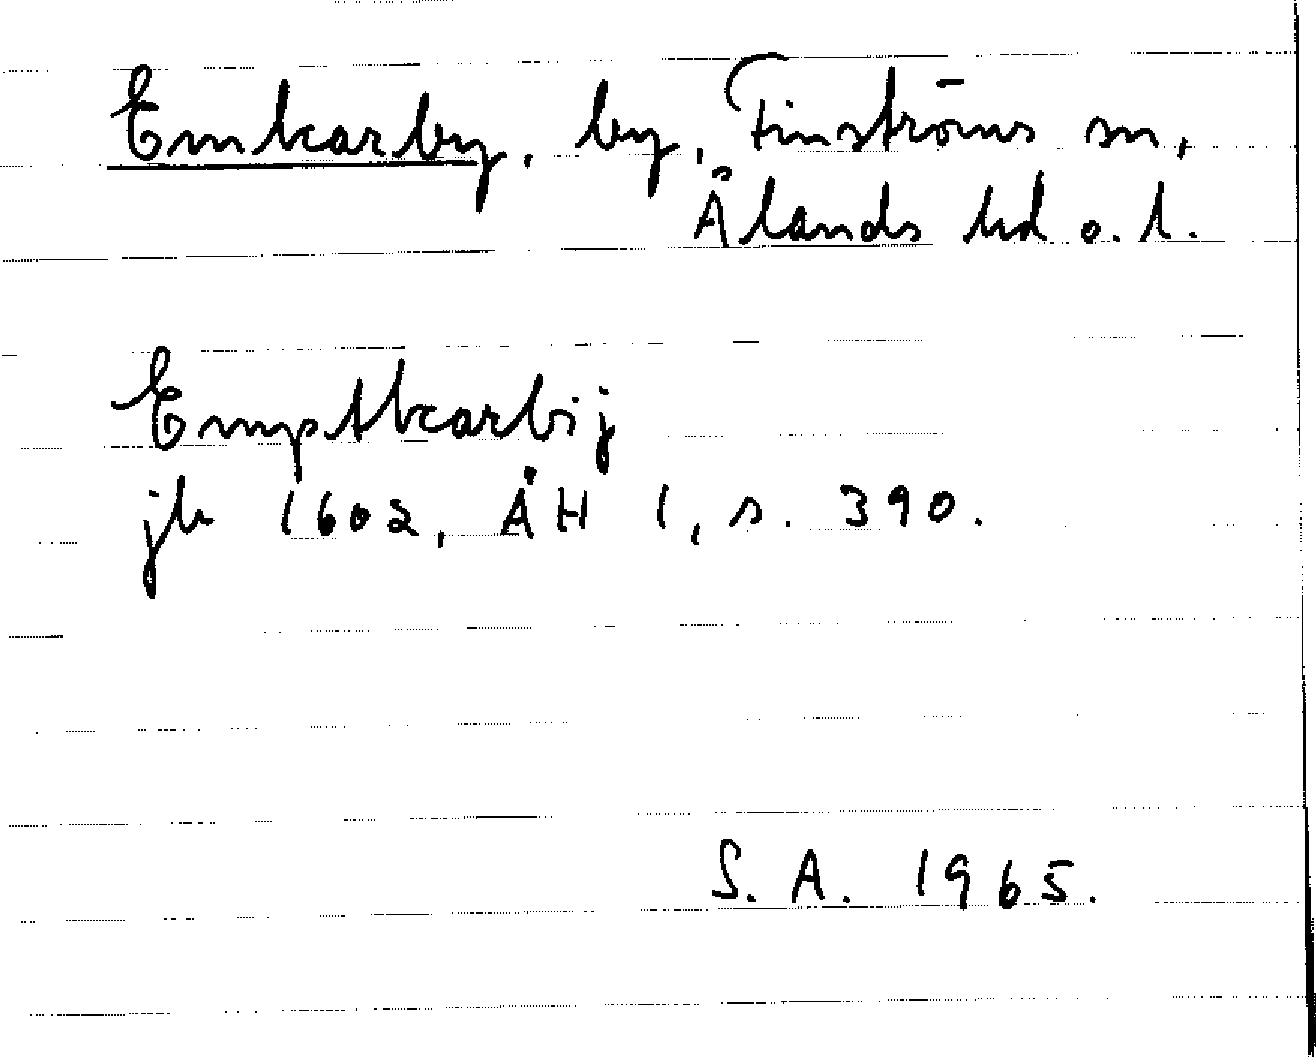 Emkarby, by, Finströms sn,
Ålands hd o. l.
Emptkarbij
jb 1602, ÅH 1, s. 390.
S. A. 1965.